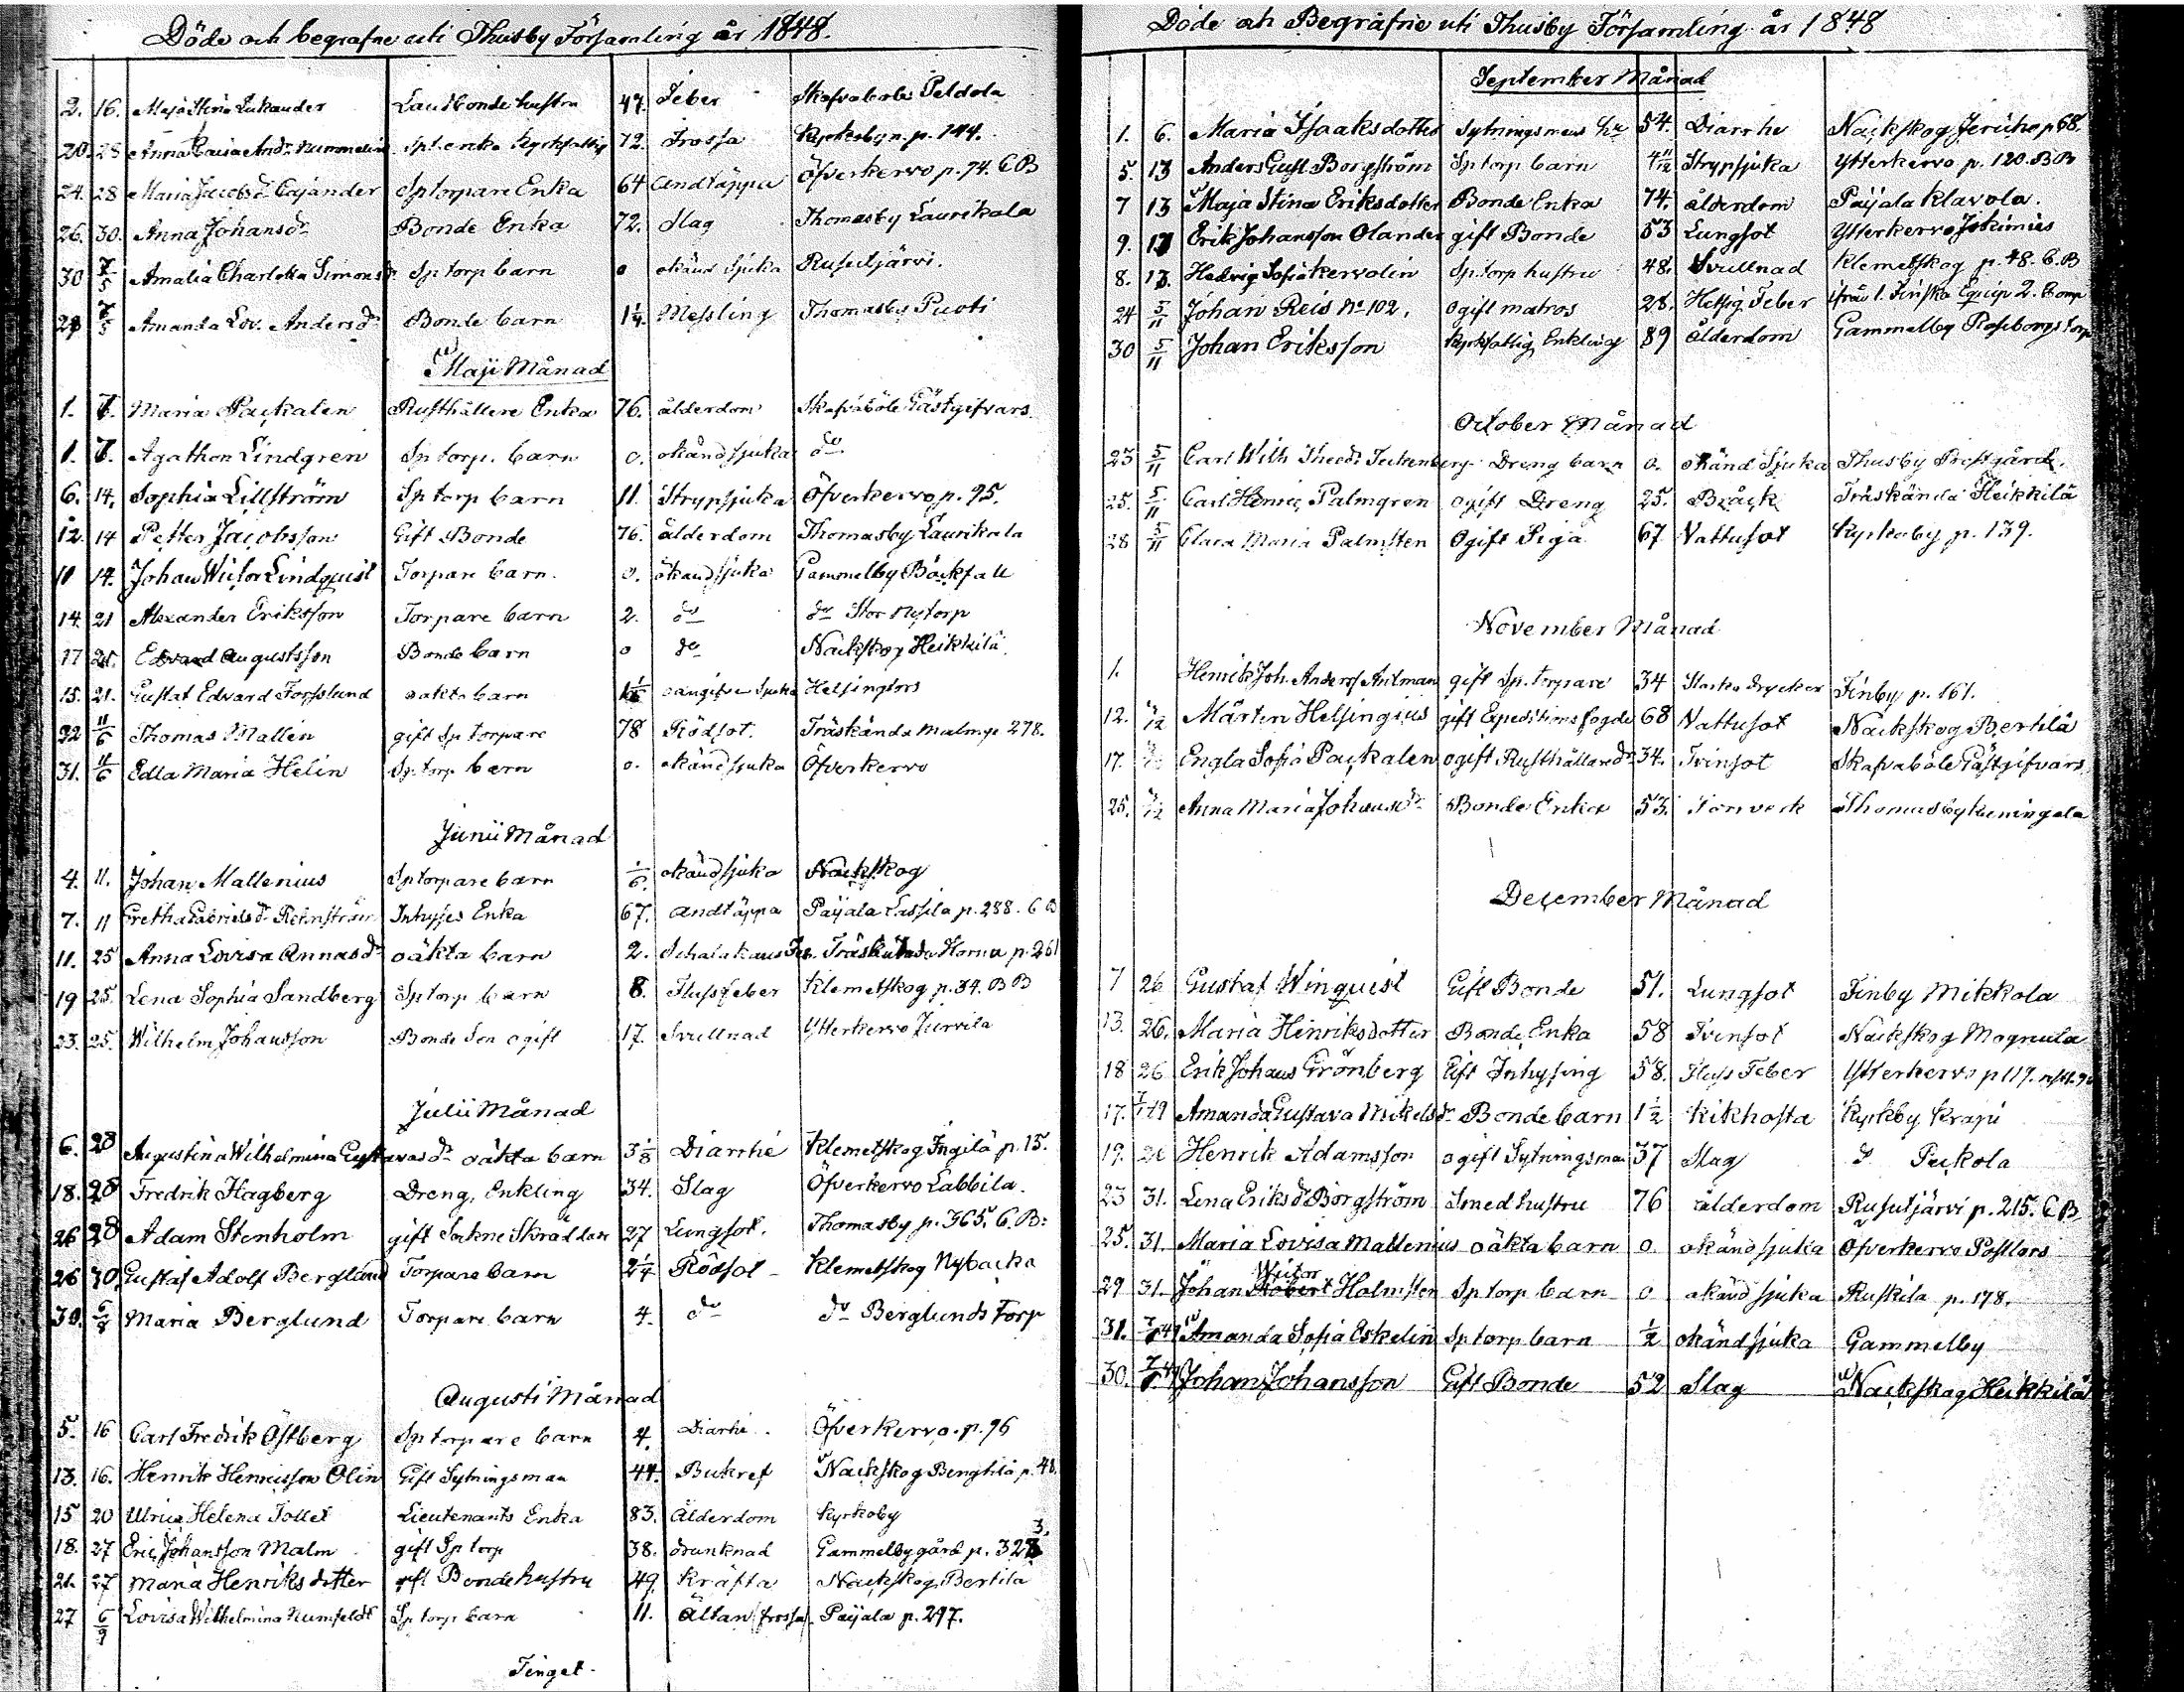 Döde och begrafne uti Thusby Församling år 1848.
2. 16. Maja Stina Lukander Landbonde hustru 47. Feber Skafvaböle Peldola
20. 28 Anna Caisa And. Nummelin Sp. enka kyrkfattig 72. Frossa Kyrkoby n. p. 144.
24. 28 Maria Jacobs dr Cajander Sp torpare Enka 64 Andtäppa Öfverkervo p. 74. C B
26. 30. Anna Johans dr Bonde Enka 72. Slag Thomasby Laurikala
30 7/5 Amalia Charlotta Simons dr Sp torp barn 0 okänd sjuka Rusutjärvi.
28 7/5 Amanda Lov. Anders dr Bonde barn 1 1/4 Messling Thomasby Puoti
Maji Månad
1. 7. Maria Packalen Rusthållere Enka 76. ålderdom Skafvaböle Gästgifvars
1. 7. Agathon Lindgren Sp torp. barn 0. okänd sjuka do
6. 14. Sophia Lillström Sp torp barn 11. Strypsjuka Öfverkervo p. 95.
12. 14 Petter Jacobsson Gift Bonde 76. ålderdom Thomasby Laurikala
10 14. Johan Victor Lindquist Torpare barn. 0. okänd sjuka Gammelby Bäckfall
14. 21 Alexander Eriksson Torpare barn 2. do do Stor Nytorp
17 21. Edvard Augustsson Bonde barn 0 do Nackskog Heikkilä.
15. 21. Gustaf Edvard Forsslund oäkta barn oangifven Sjuka Helsingfors
22 11/6 Thomas Mallén gift Sp torpare 78 Rödsot. Träskända Malmgr 278.
31. 11/6 Edla Maria Helin Sp. torp barn 0. okänd sjuka Öfverkervo
Junii Månad
4. 11. Johan Mallenius Sp torpare barn 1/6. okänd sjuka Nackskog
7. 11 Gretha Gabriels dr Rehnström Inhyses Enka 67. Andtäppa Paijala Lassila p. 288. C B
11. 25 Anna Lovisa Annas dr oäkta barn 2. Schalakans Feb. Träskända Horna p. 261
19 25. Lena Sophia Sandberg Sp torp barn 8. Fluss feber Klemetskog p. 34. B B
23. 25. Wilhelm Johansson Bonde Son ogift 17. Svullnad Ytterkervo Jurvila
Julii Månad
6. 28 Augustina Wilhelmina Gustavas dr oäkta barn 3 1/8 Diarrhé Klemetskog Ingilä p. 15.
18. 28 Fredrik Hagberg Dreng, Enkling 34. Slag Öfverkervo Labbila.
26 28 Adam Stenholm gift Sockne Skräddare 27 Lungsot. Thomasby p. 365. C. B:
26 30 Gustaf Adolf Berglund Torpare barn 2 1/4 Rödsot Klemetskog Nybacka
30. 6/8 Maria Berglund Torpare barn 4. do do Berglunds Torp
Augusti Månad
5. 16 Carl Fredrik Östberg Sp torpare barn 4. Diarhé Öfverkervo. p. 96
13. 16. Henrik Henricsson Olin Gift Sytningsman 44. Bukref Nackskog Benghtä p. 48.
15 20 Ulrica Helena Tollet Lieutenants Enka 83. Ålderdom Kyrkoby
18. 27 Eric Johansson Malm gift Sp torp 38. drunknad Gammelby gård p. 323
21. 27 Maria Henriks dotter gift Bonde hustru 49. Kräfta Nackskog Bertila
27 6/9 Lovisa Wilhelmina Numfeldt Sp torp barn 11. Ältan (frossa) Paijala p. 297.
Tinget
Döde och Begrafne uti Thusby Församling år 1848
September Månad
1. 6. Maria Isaaksdotter Sytningsmans hu 54. Diarrhe Nackskog Jericho p 68.
5. 13 Anders Gust Borgström Sp torp barn 4 11/12 Strypsjuka Ytterkervo p. 120. B B
7 13 Maja Stina Eriksdotter Bonde Enka 74. ålderdom Paijala Klavola.
9. 13 Erik Johansson Olander gift Bonde 53 Lungsot Ytterkervo Jokimies
8. 13. Hedvig Sofia Kervolin Sp. torp hustru 48. Svullnad Klemetskog p. 48. C. B
24 5/11 Johan Reis No 102. ogift matros 28. Hetsig Feber ifrån 1. Finska Equip 2. Comp
30 5/11 Johan Eriksson Kyrkfattig Enkling 89 ålderdom Gammelby Roseborgs torp
October Månad
23 5/11 Carl Wilh Theod. Teckenberg Dreng barn 0. okänd Sjuka Thusby Prestgård.
25. 5/11 Carl Henric Palmgren ogift Dreng 25. Bråck Träskända Heikkilä
28 5/11 Clara Maria Palmsten Ogift Piga 67 Vattusot Kyrkoby p. 139.
November Månad
1. Henrik Joh. Anderss Ahlman gift Sp. torpare 34 Starka drycker Finby p. 161.
12. Mårten Helsingius gift Expeditions fogde 68 Vattusot Nackskog Bertilä
17. Engla Sofia Packalen ogift Rusthållare dr 34. Tvinsot Skafvaböle Gästgifvars
25. Anna Maria Johans dr Bonde Enka 53. Torrverk Thomasby Keningala
December Månad
7 26 Gustaf Winquist Gift Bonde 51. Lungsot Finby Mikkola
13. 26. Maria Hinriksdotter Bonde Enka 58 Tvinsot Nackskog Magnula
18 26 Erik Johans Grönberg Gift Inhysing 58. Fluss Feber Ytterkervo p 117.
17. Amanda Gustava Mikels dr Bonde barn 1 1/2 Kikhosta Kyrkby Krapi
19. 26 Henrik Adamsson ogift Sytningsman 37 Slag d Pickola
23 31. Lena Eriks dr Borgström Smed hustru 76 ålderdom Rusutjärvi p. 215. C B
25. 31. Maria Lovisa Mallenius oäkta barn 0. okänd sjuka Öfverkervo Postlars
29 31. Johan Robert Victor Holmsten Sp torp barn 0 okänd sjuka Ruskila p. 178.
31. Amanda Sofia Eskelin Sp torp barn 1/2 okänd sjuka Gammelby
30. Johan Johansson Gift Bonde 52 Slag Nackskog Heikkilä